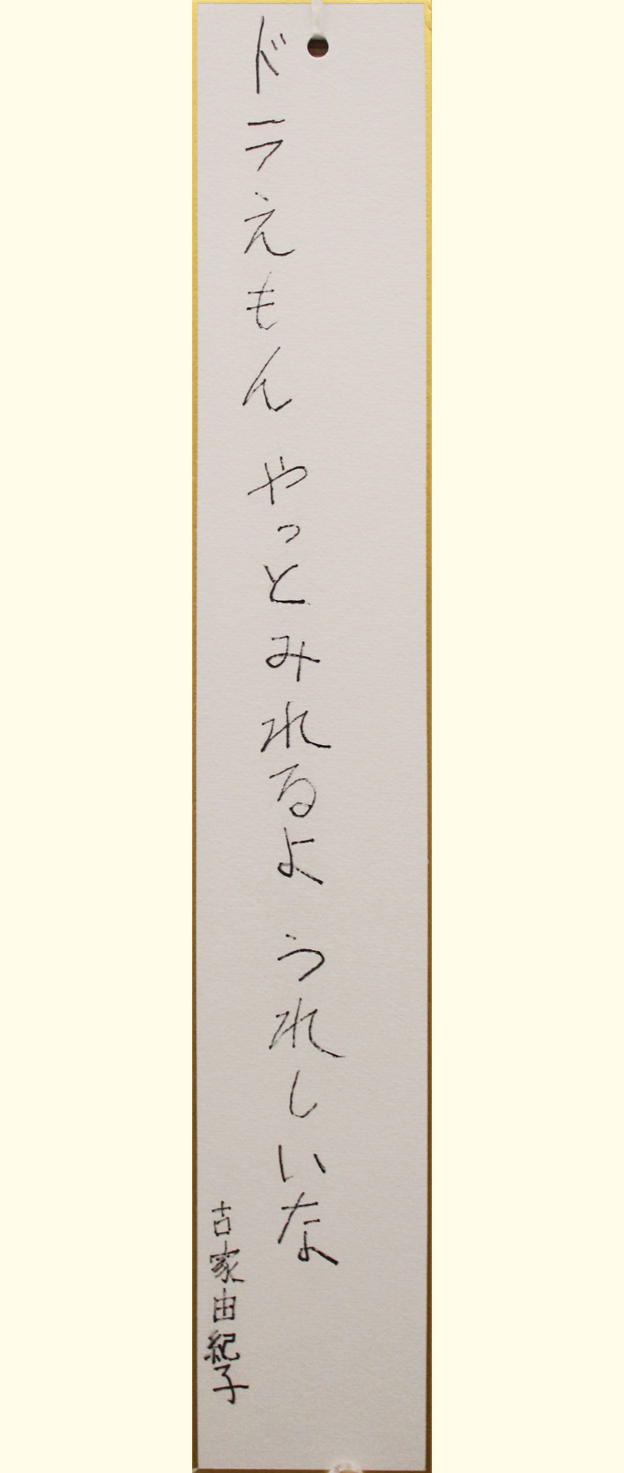 ドラえもん やっとみれるよ うれしいな
古家由紀子